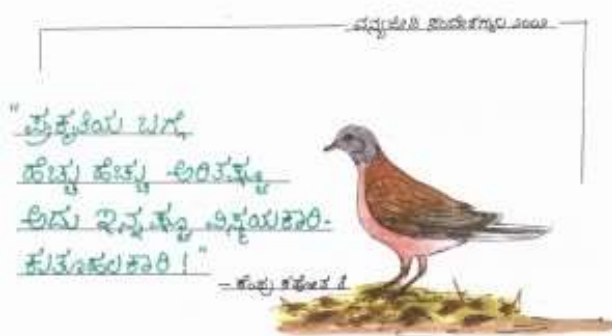 ವನ್ಯಜೀವಿ ಸಂದೇಶಗಳು 2002
"ಪ್ರಕೃತಿಯ ಬಗ್ಗೆ
ಹೆಚ್ಚು ಹೆಚ್ಚು ಅರಿತಷ್ಟೂ
ಅದು ಇನ್ನಷ್ಟೂ ವಿಸ್ಮಯಕಾರಿ-
ಕುತೂಹಲಕಾರಿ!"
- ಕೆಂಪು ಕಪೋತ